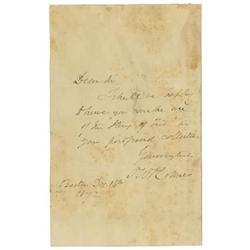 Dear Sir
I shall be happy
to have you make use
of the Story of Iris in
your proposed collection
Yours very truly
O W Holmes
Boston Dec. 18th